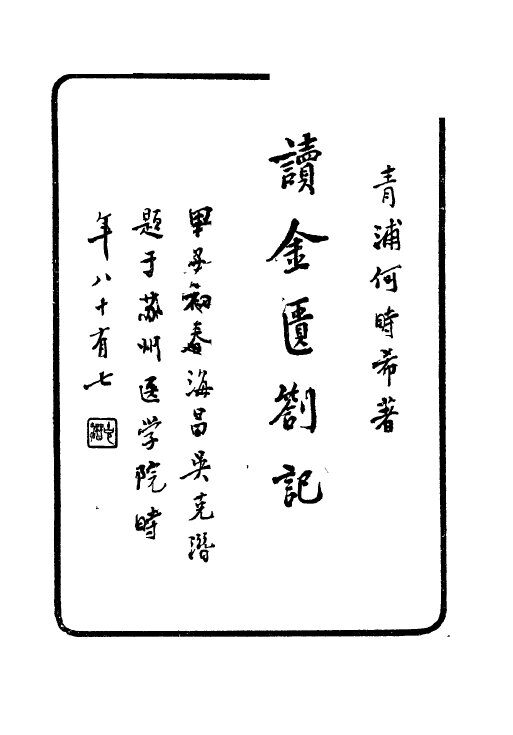 青浦何時希著
讀金匱劄記
甲子初春海昌吳克潛
題于苏州医学院時
年八十有七